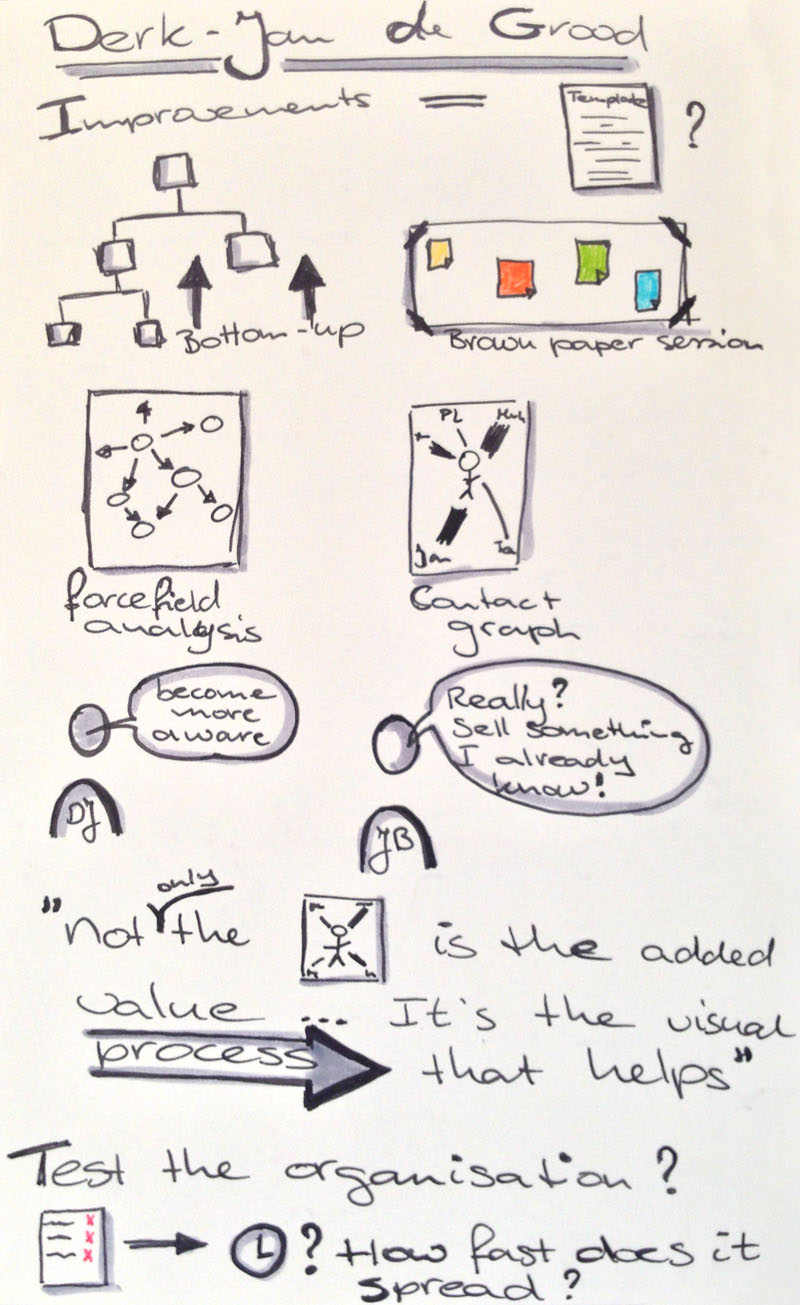 Derk-Jan de Grood
Improvements = Template ?
Bottom-up
Brown paper session
PL
Jan
forcefield
analysis
Contact
graph
become
more
aware
Really?
Sell something
I already
know!
DJ
JB
only
"not the is the added
value ... It's the visual
process that helps"
Test the organisation?
x
x
x
? How fast does it
spread?